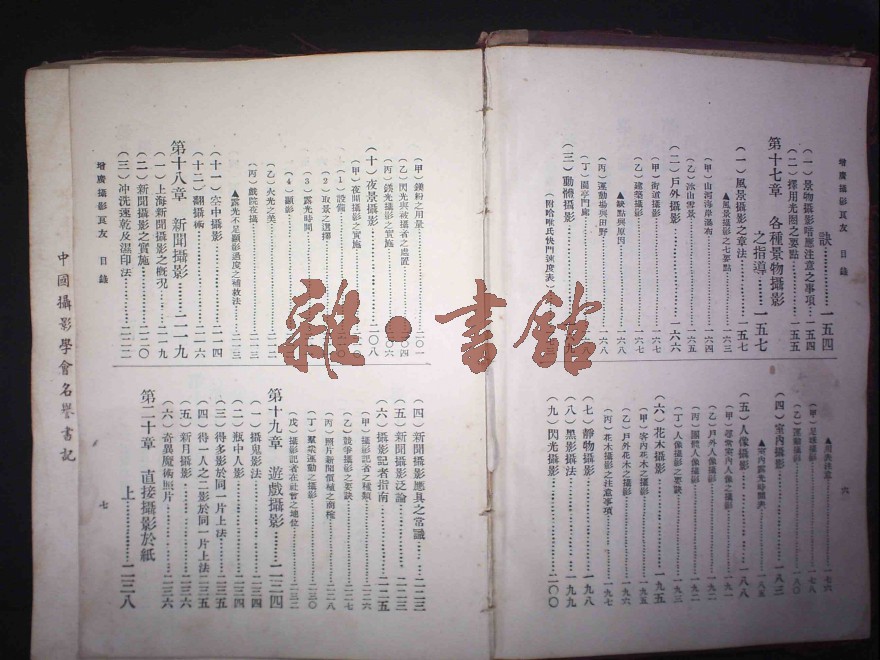 增廣攝影良友 目錄
訣……一五四
(一)景物攝影暗應注意之事項……一五四
(二)擇用光圈之要點……一五五
第十七章 各種景物攝影
之指導……一五七
(一)風景攝影之章法……一五七
▲風景攝影之七要點……一六三
(甲)山河海岸瀑布……一六四
(乙)冰山雪景……一六五
(二)戶外攝影……一六六
(甲)街道攝影……一六七
(乙)建築攝影……一六七
▲缺點與原因……一六八
(丙)運動場與田野……一六八
(丁)園亭門廊
(三)動體攝影
(附哈唯氏快門速度表)
(甲)足球攝影……一七八
(乙)運動攝影……一八〇
(四)室內攝影……一八三
▲室內露光時間表……一八五
(五)人像攝影……一八八
(甲)尋常室內人像之攝影……一九一
(乙)戶外人像攝影……一九二
(丙)團體人像攝影……一九二
(丁)人像攝影之要訣……一九三
(六)花木攝影……一九五
(甲)室內花木之攝影……一九五
(乙)戶外花木之攝影……一九六
(丙)花木攝影之注意事項……一九七
(七)靜物攝影……一九八
(八)黑影攝法……一九九
(九)閃光攝影……二〇〇
六
(甲)鎂粉之用量……二〇一
(乙)閃光與被攝者之處置
(丙)鎂光攝影之實施
(十)夜景攝影……二〇八
(甲)夜間攝影之實施
(1)設備
(2)取景之選擇
(3)露光時間
(4)顯影
(乙)火光之美……二一二
(丙)戲院夜攝……二一三
▲露光不足顯影過度之補救法……二一三
(十一)空中攝影……二一四
(十二)翻攝術……二一六
第十八章 新聞攝影……二一九
(一)上海新聞攝影之概況……二一九
(二)新聞攝影之實施……二二〇
(三)冲洗速乾及濕印法……二二二
增廣攝影良友 目錄
(四)新聞攝影應具之常識……二二三
(五)新聞攝影泛論……二二三
(六)攝影記者指南……二二五
(甲)攝影記者之種類……二二六
(乙)競爭攝影之要訣……二二七
(丙)照片新聞價值之商榷……二二八
(丁)羣衆運動之攝影……二三〇
(戊)攝影記者在社會之地位……二三二
第十九章 遊戲攝影……二三四
(一)攝鬼影法……二三四
(二)瓶中人影……二三四
(三)得多影於同一片上法……二三五
(四)得一人之二影於同一片上法……二三五
(五)新月攝影……二三六
(六)奇異魔術照片……二三六
第二十章 直接攝影於紙
上……二三八
七
中國攝影學會名譽書記
雜·書館